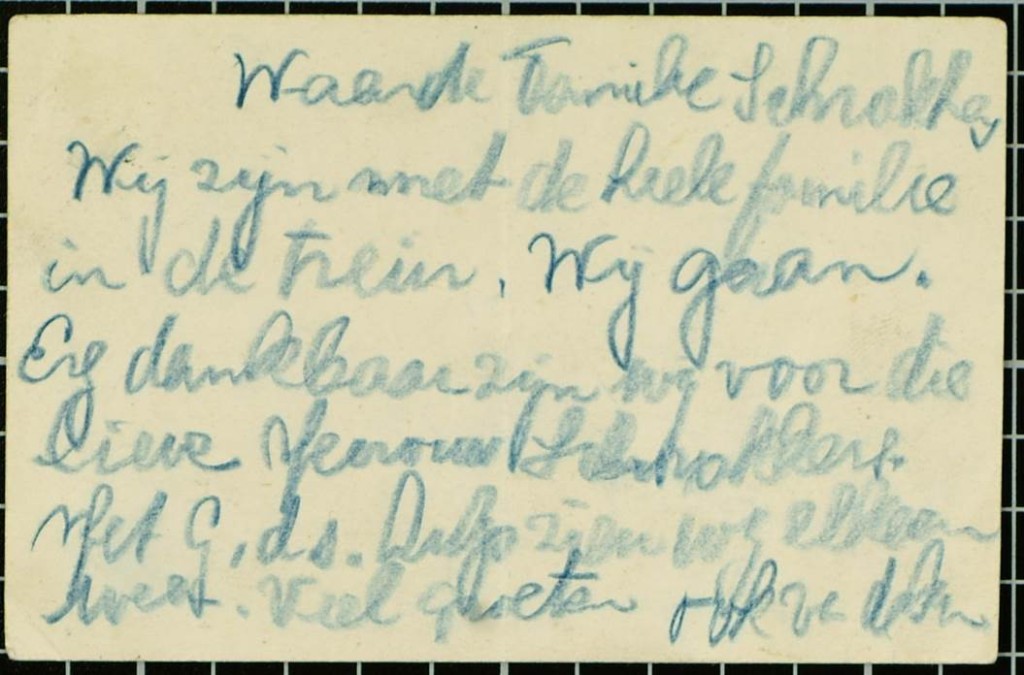 Waarde Familie Schrakkes
Wij zijn met de hiele familie
in de trein, Wij gaan.
Erg dankbaar zijn wij voor die
lieve Mevrouw
Met G,ds. hulp zien wij elkaar
weer. Viel groeten ook va